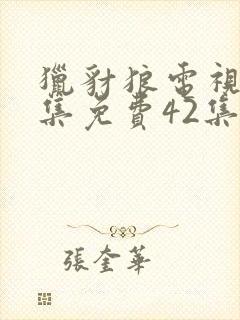 獵豺狼電視
集免費42集
張奎華